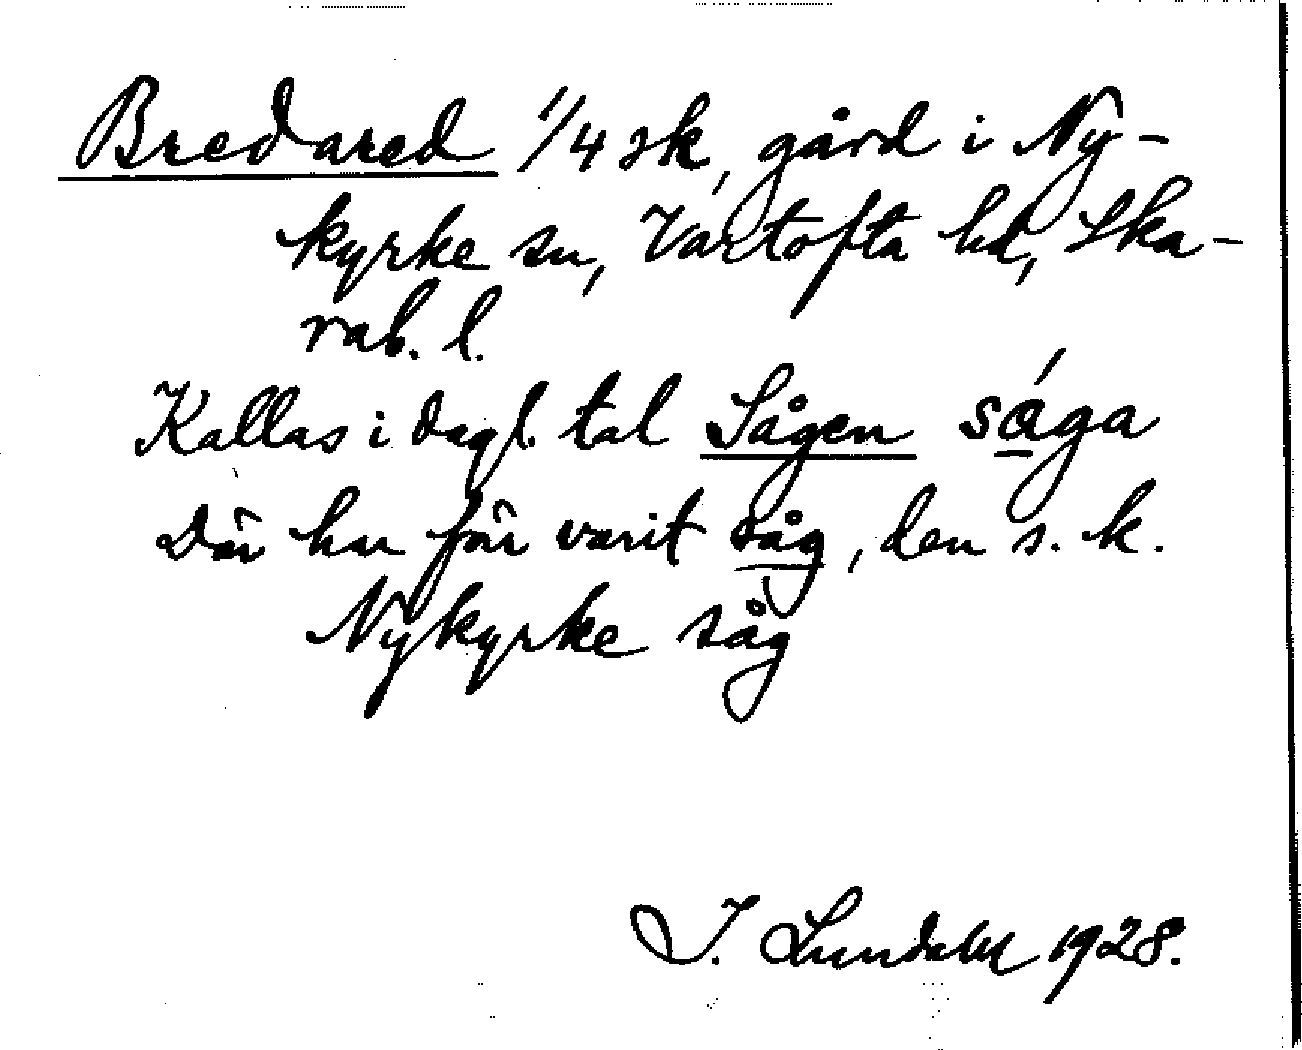 Bredared 1/4 sk, gård i Ny-
kyrke sn, Vartofta hd, Ska-
rab. l.
Kallas i dagl. tal Sågen såga
Där har förr varit såg, den s. k.
Nykyrke såg
I. Lundahl 1928.